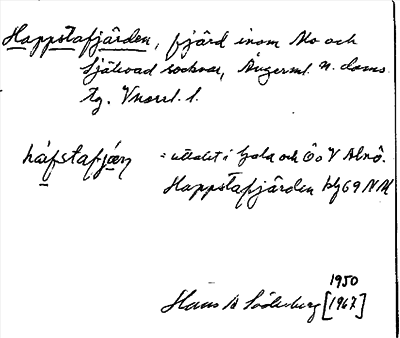 Happstafjärden, fjärd inom Mo och
Själevad socknar, Ångerml. n. doms.
tg. Vnorrl. l.
háfstafjæn = uttalet i och Ö o V Alnö.
Happstafjärden bl 69 NM
1950
Hans B Söderberg [1967]